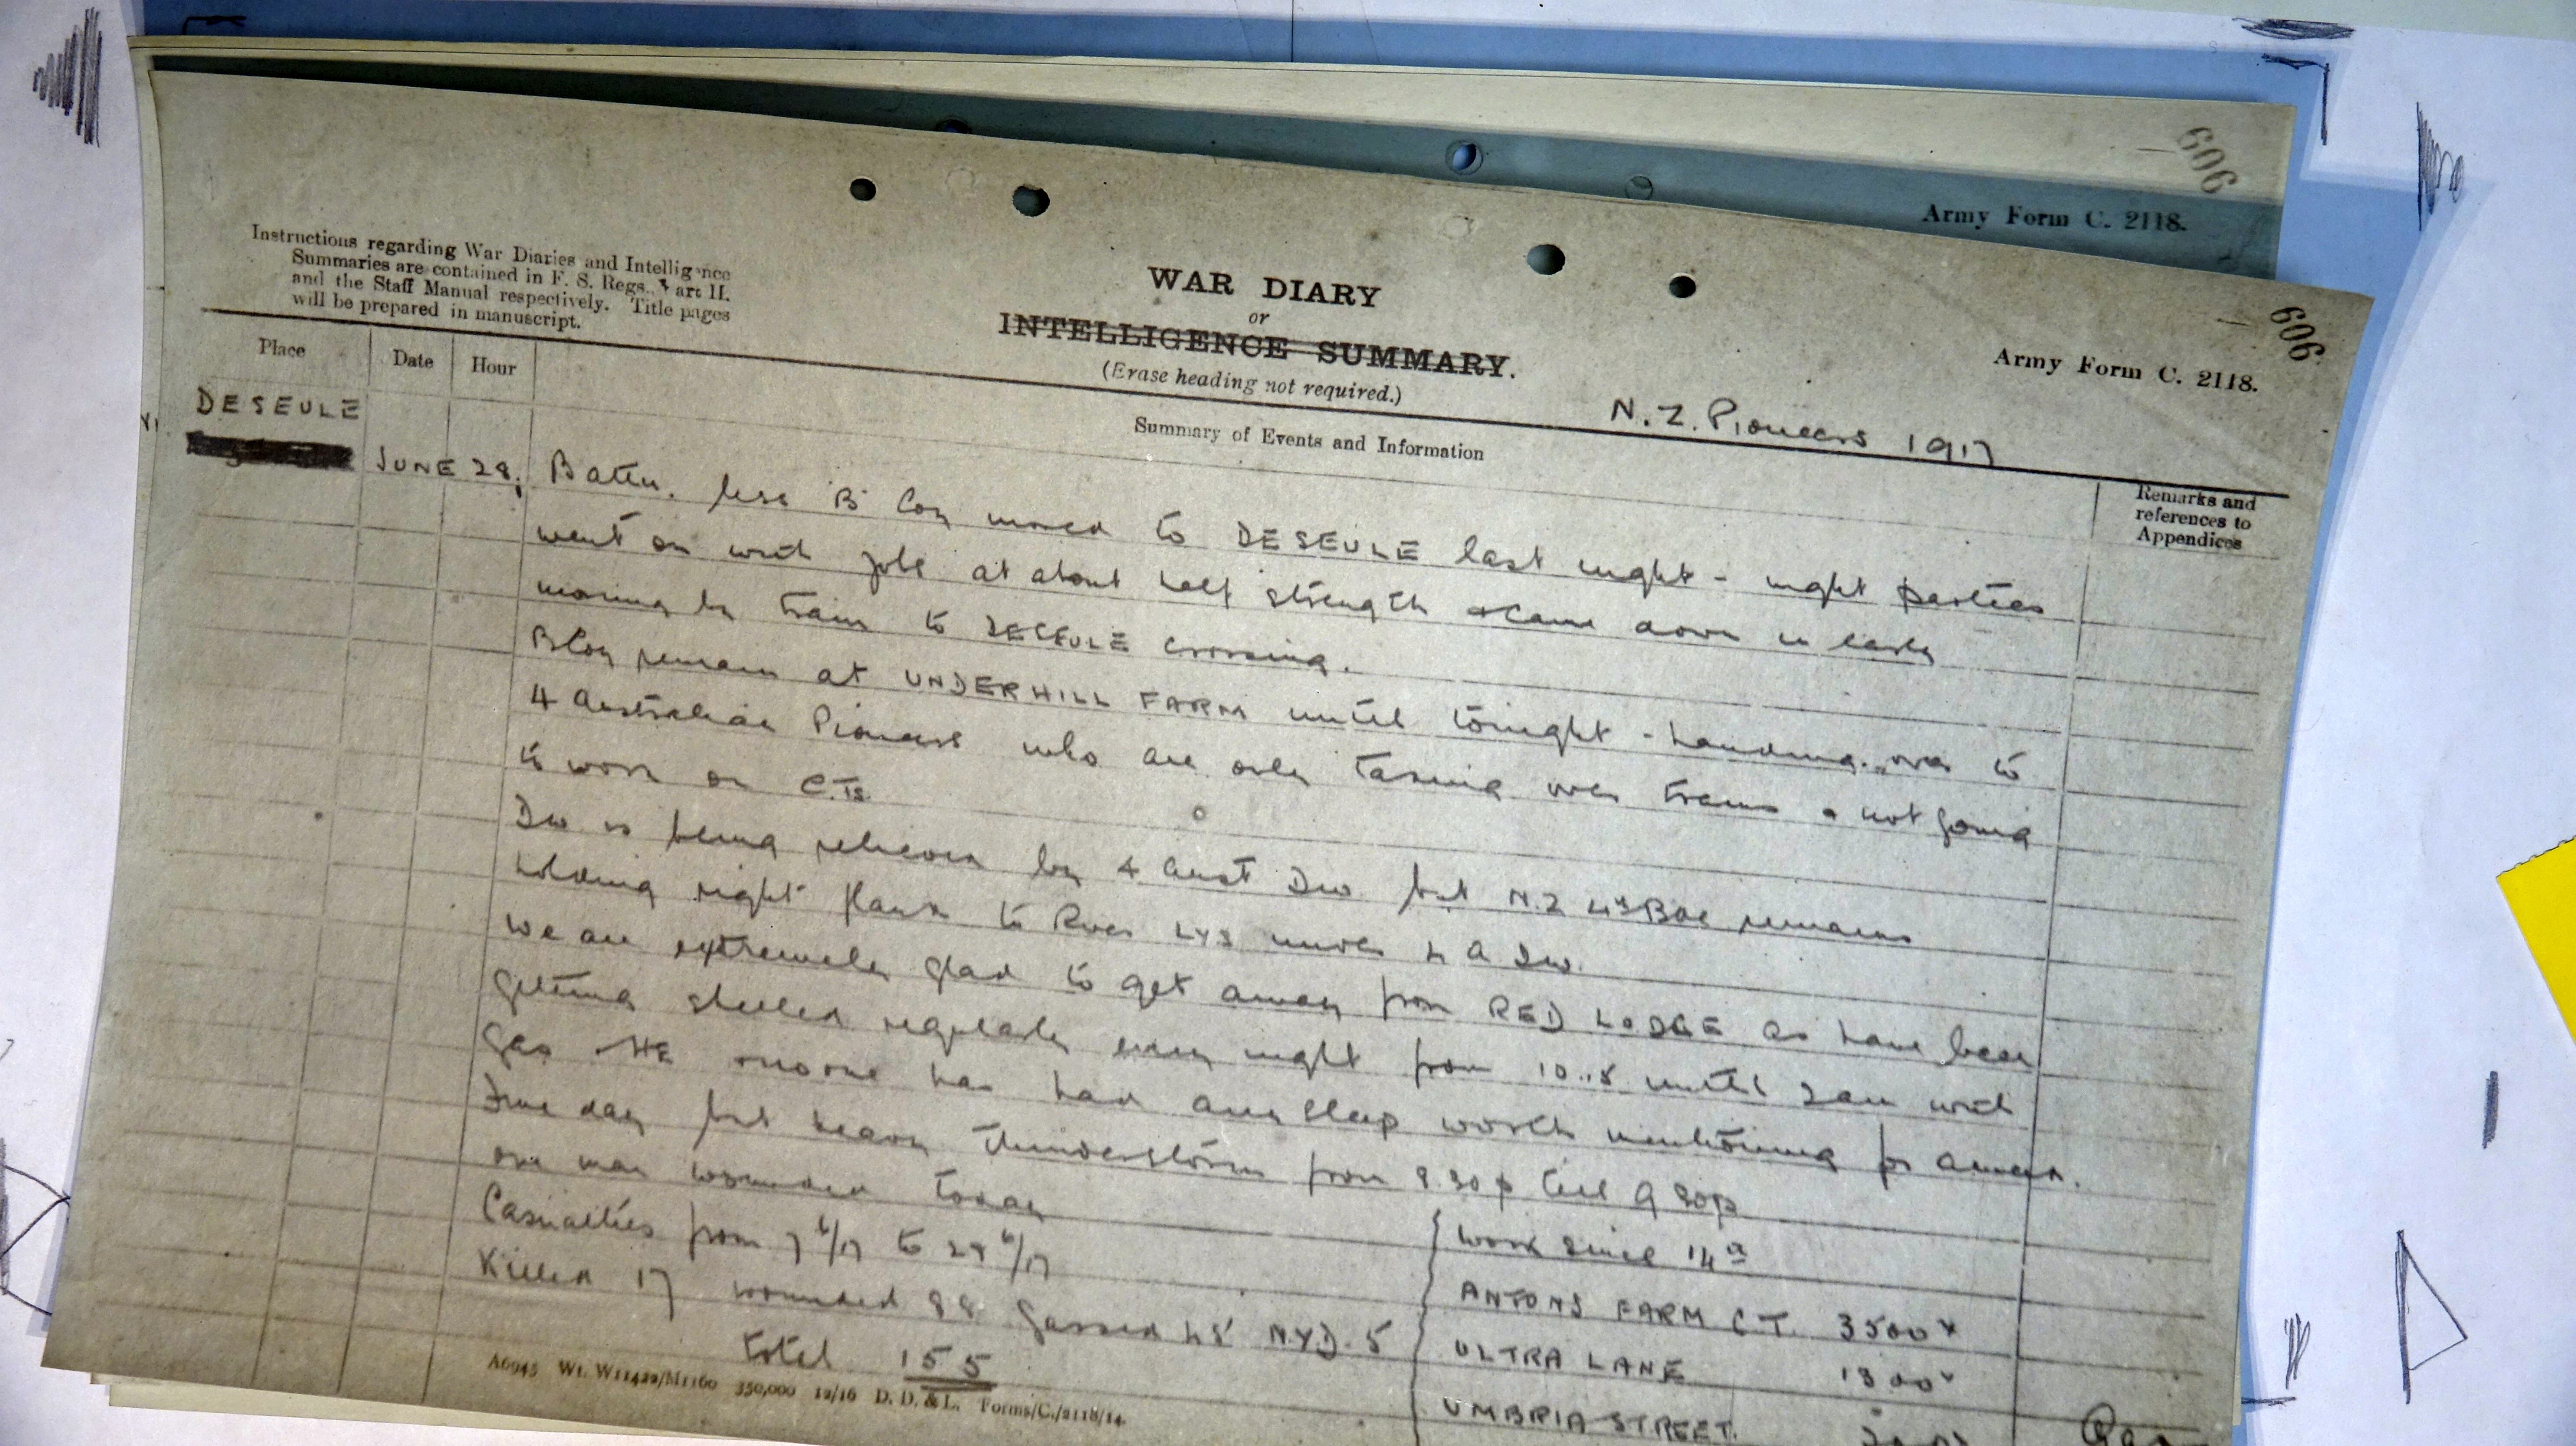 606
Army Form C. 2118.
606
Army Form C. 2118.
Instructions regarding War Diaries and Intelligence
Summaries are contained in F. S. Regs., Part II.
and the Staff Manual respectively. Title pages
will be prepared in manuscript.
WAR DIARY
or
INTELLIGENCE SUMMARY.
(Erase heading not required.)
N.Z. Pioneers 1917
Place
Date
Hour
Summary of Events and Information
Remarks and
references to
Appendices
DESEULE
JUNE 28,
Battn. less 'B' Coy moved to DESEULE last night - night parties
went on with jobs at about half strength & came down in early
morning by tram to DESEULE crossing.
B Coy remain at UNDERHILL FARM until tonight - handing over to
4 Australian Pioneers who are only taking over trams & not going
to work on C.Ts.
Div is being relieved by 4 Aust Div but N.Z 4th Bde remains
holding right flank to River LYS under 4 A Div.
We are extremely glad to get away from RED LODGE as have been
getting shelled regularly every night from 10.15 until 2am with
gas & HE & no one has had any sleep worth mentioning for a week.
Fine day but heavy thunderstorm from 8.30p till 9 30p
one man wounded today
Casualties from 7 6/17 to 28 6/17
Killed 17 wounded 88 gassed 45 N.Y.D. 5
total 155
Work since 14th
ANTONS FARM C T. 3500x
ULTRA LANE 1300x
UMBRIA STREET.
A6945 Wt. W11422/M1160 350,000 12/16 D. D. & L. Forms/C./2118/14.